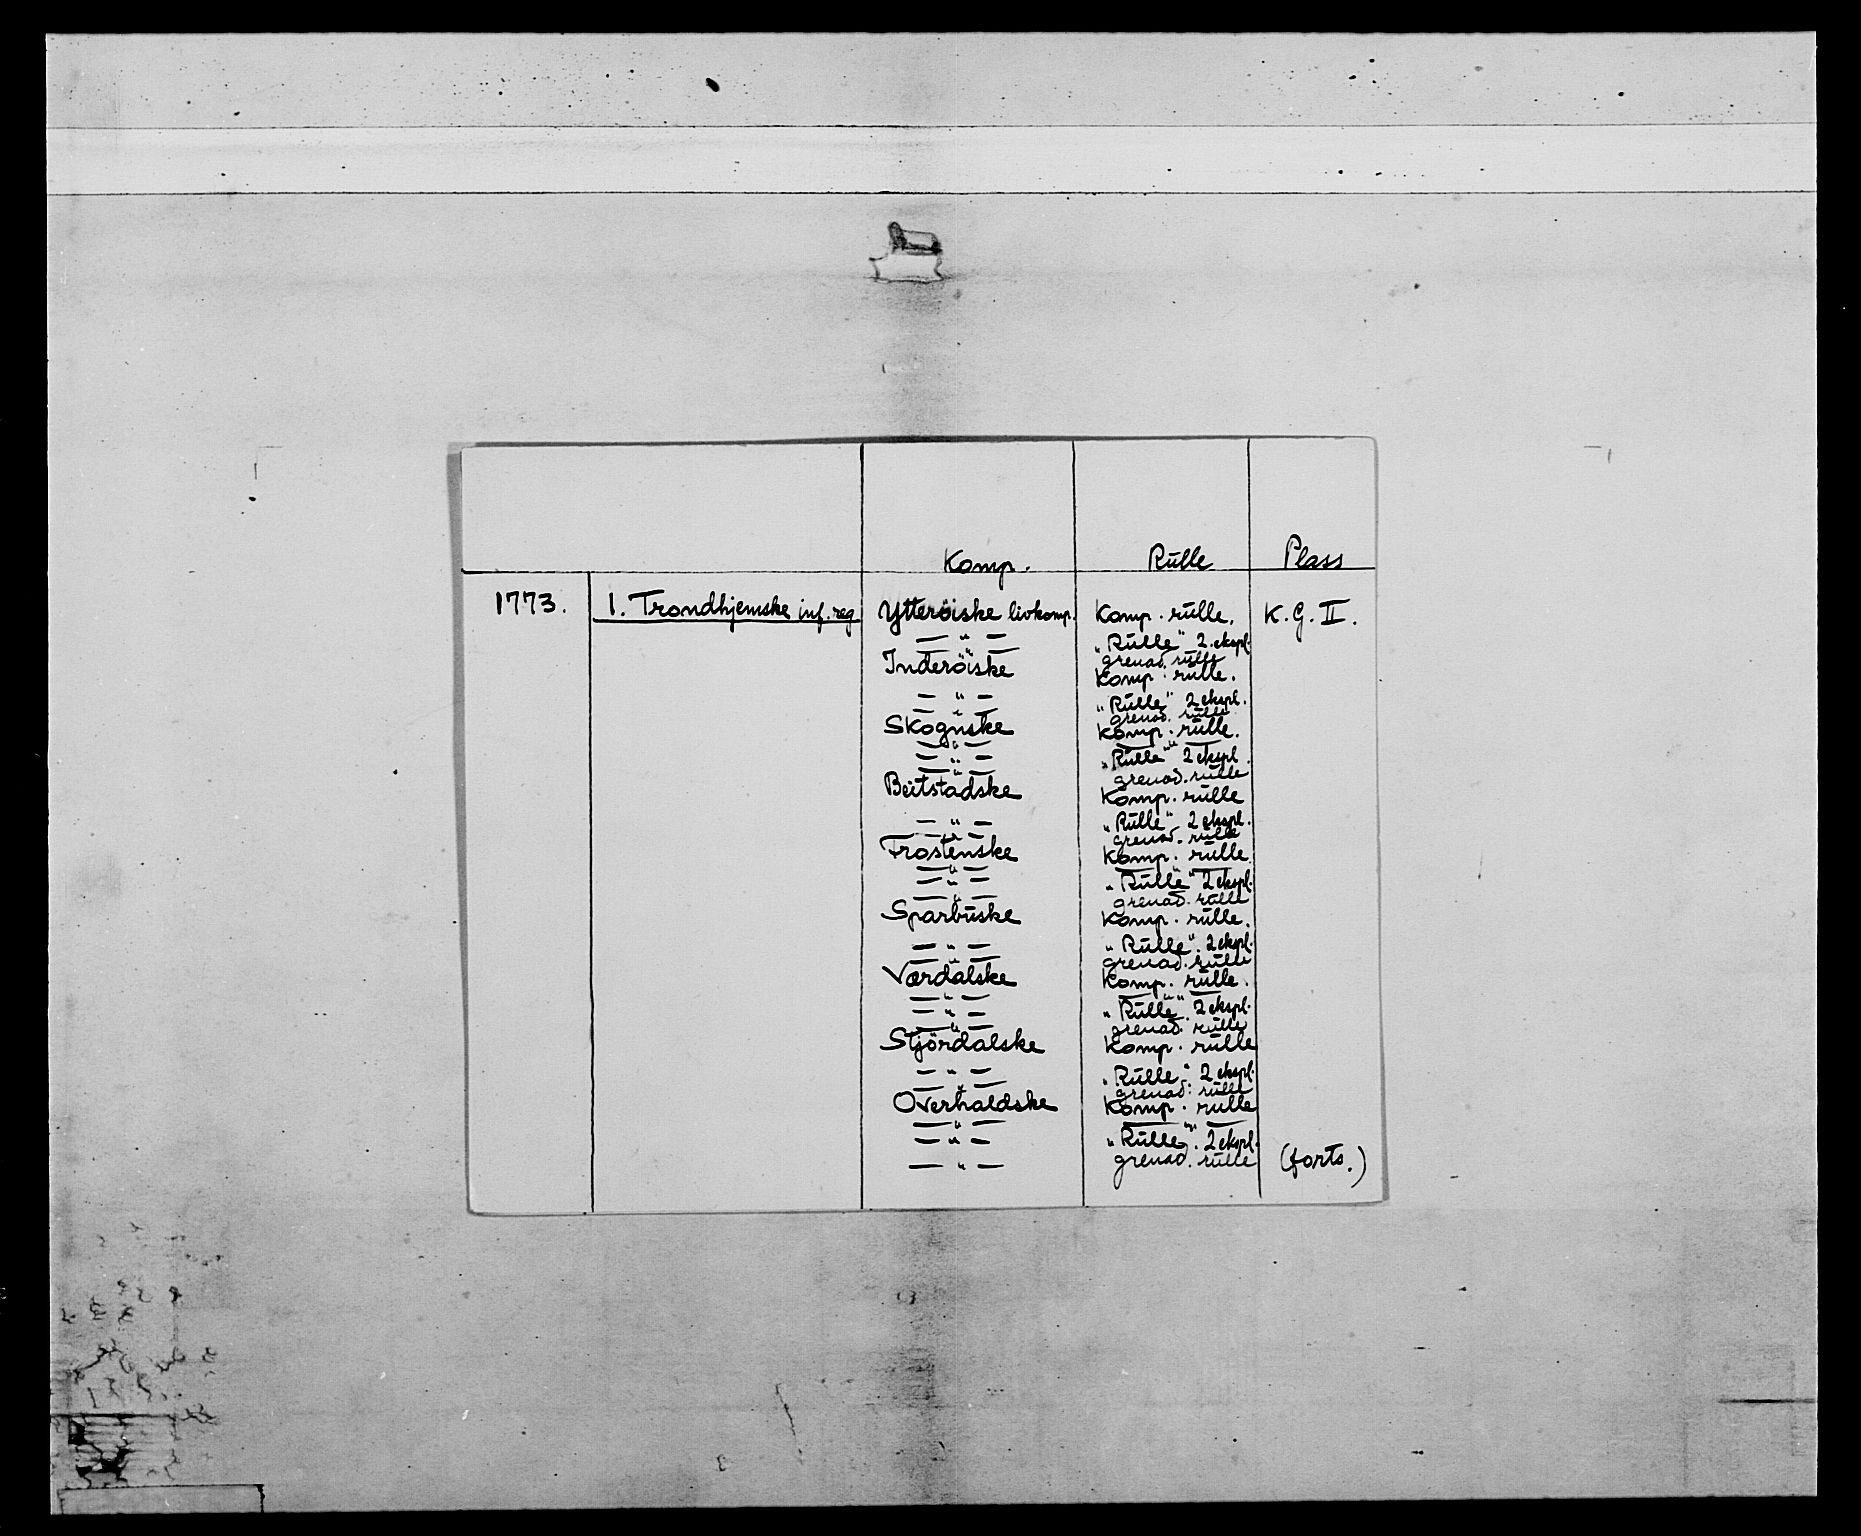 Komp. Rulle Plass
1773. 1. Trondhjemske inf. reg Ytterøiske livkomp. Komp. rulle. K. G. II.
— " — "Rulle" 2. ekspl.
— " — grenad. rulle
Inderöiske Komp. rulle.
— " — "Rulle" 2 ekspl.
— " — grenad. rulle
Skognske Komp. rulle.
— " — — " —
— " — "Rulle" 2 ekspl.
— " — grenad. rulle
Beitstadske Komp. rulle
— " — "Rulle" 2 ekspl.
— " — grenad. rulle
Frostenske Komp. rulle.
— " — — " —
— " — "Rulle" 2 ekspl.
— " — grenad. rulle
Sparbuske Komp. rulle.
— " — "Rulle". 2 ekspl.
— " — grenad. rulle
Værdalske Komp. rulle.
— " — — " —
— " — "Rulle". 2 ekspl.
— " — grenad. rulle
Stjördalske Komp. rulle
— " — "Rulle". 2 ekspl.
— " — grenad. rulle
Overhaldske Komp. rulle
— " — — " —
— " — "Rulle". 2 ekspl.
— " — grenad. rulle (forts.)